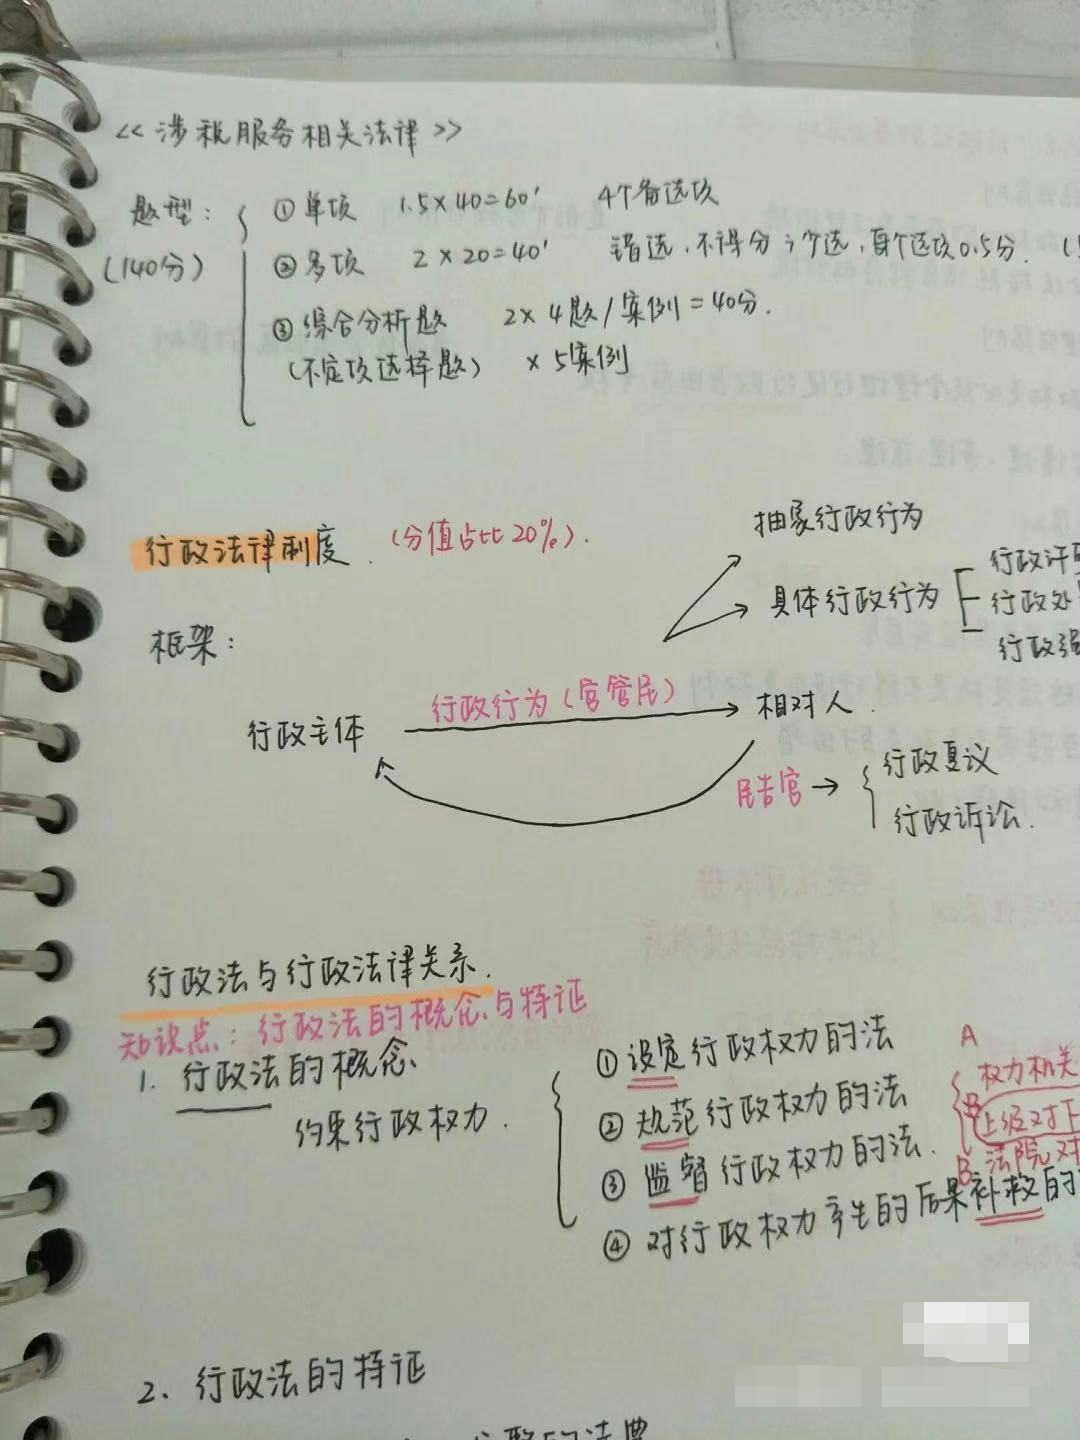 <<涉税服务相关法律>>
题型：
(140分)
① 单项 1.5×40=60' 4个备选项
② 多项 2×20=40' 错选，不得分；少选，每个选项0.5分.
③ 综合分析题 2×4题/案例=40分.
(不定项选择题) ×5案例
行政法律制度. (分值占比20%).
框架：
抽象行政行为
具体行政行为
行政许
行政处
行政强
行政主体 行政行为(官管民) 相对人.
民告官→
行政复议
行政诉讼.
行政法与行政法律关系.
知识点：行政法的概念与特征
1. 行政法的概念
约束行政权力.
① 设定行政权力的法
② 规范行政权力的法
③ 监督行政权力的法.
④ 对行政权力产生的后果补救的
A
权力机关
上级对下
B 法院对
2. 行政法的特征